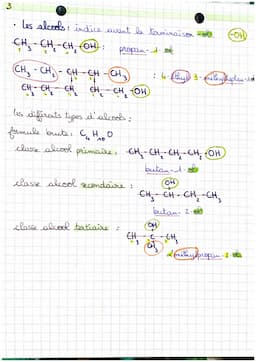 3
• Les alcools : indice avant la terminaison (-OH)
CH₃ - CH₂ - CH₂ - OH : propan-1-ol
CH₃ - CH₂ - CH - CH - CH₃ : 4-éthyl 3-méthylheptan-1-ol
CH₃ - CH₂ - CH₂ CH₂ - CH₂ - OH
les différents types d'alcools :
formule brute : C₄H₁₀O
classe alcool primaire : CH₃ - CH₂ - CH₂ - CH₂ - OH
butan-1-ol
classe alcool secondaire : OH
CH₃ - CH - CH₂ - CH₃
butan-2-ol
classe alcool tertiaire : OH
CH₃ - C - CH₃
CH₃
2 méthylpropan-2-ol